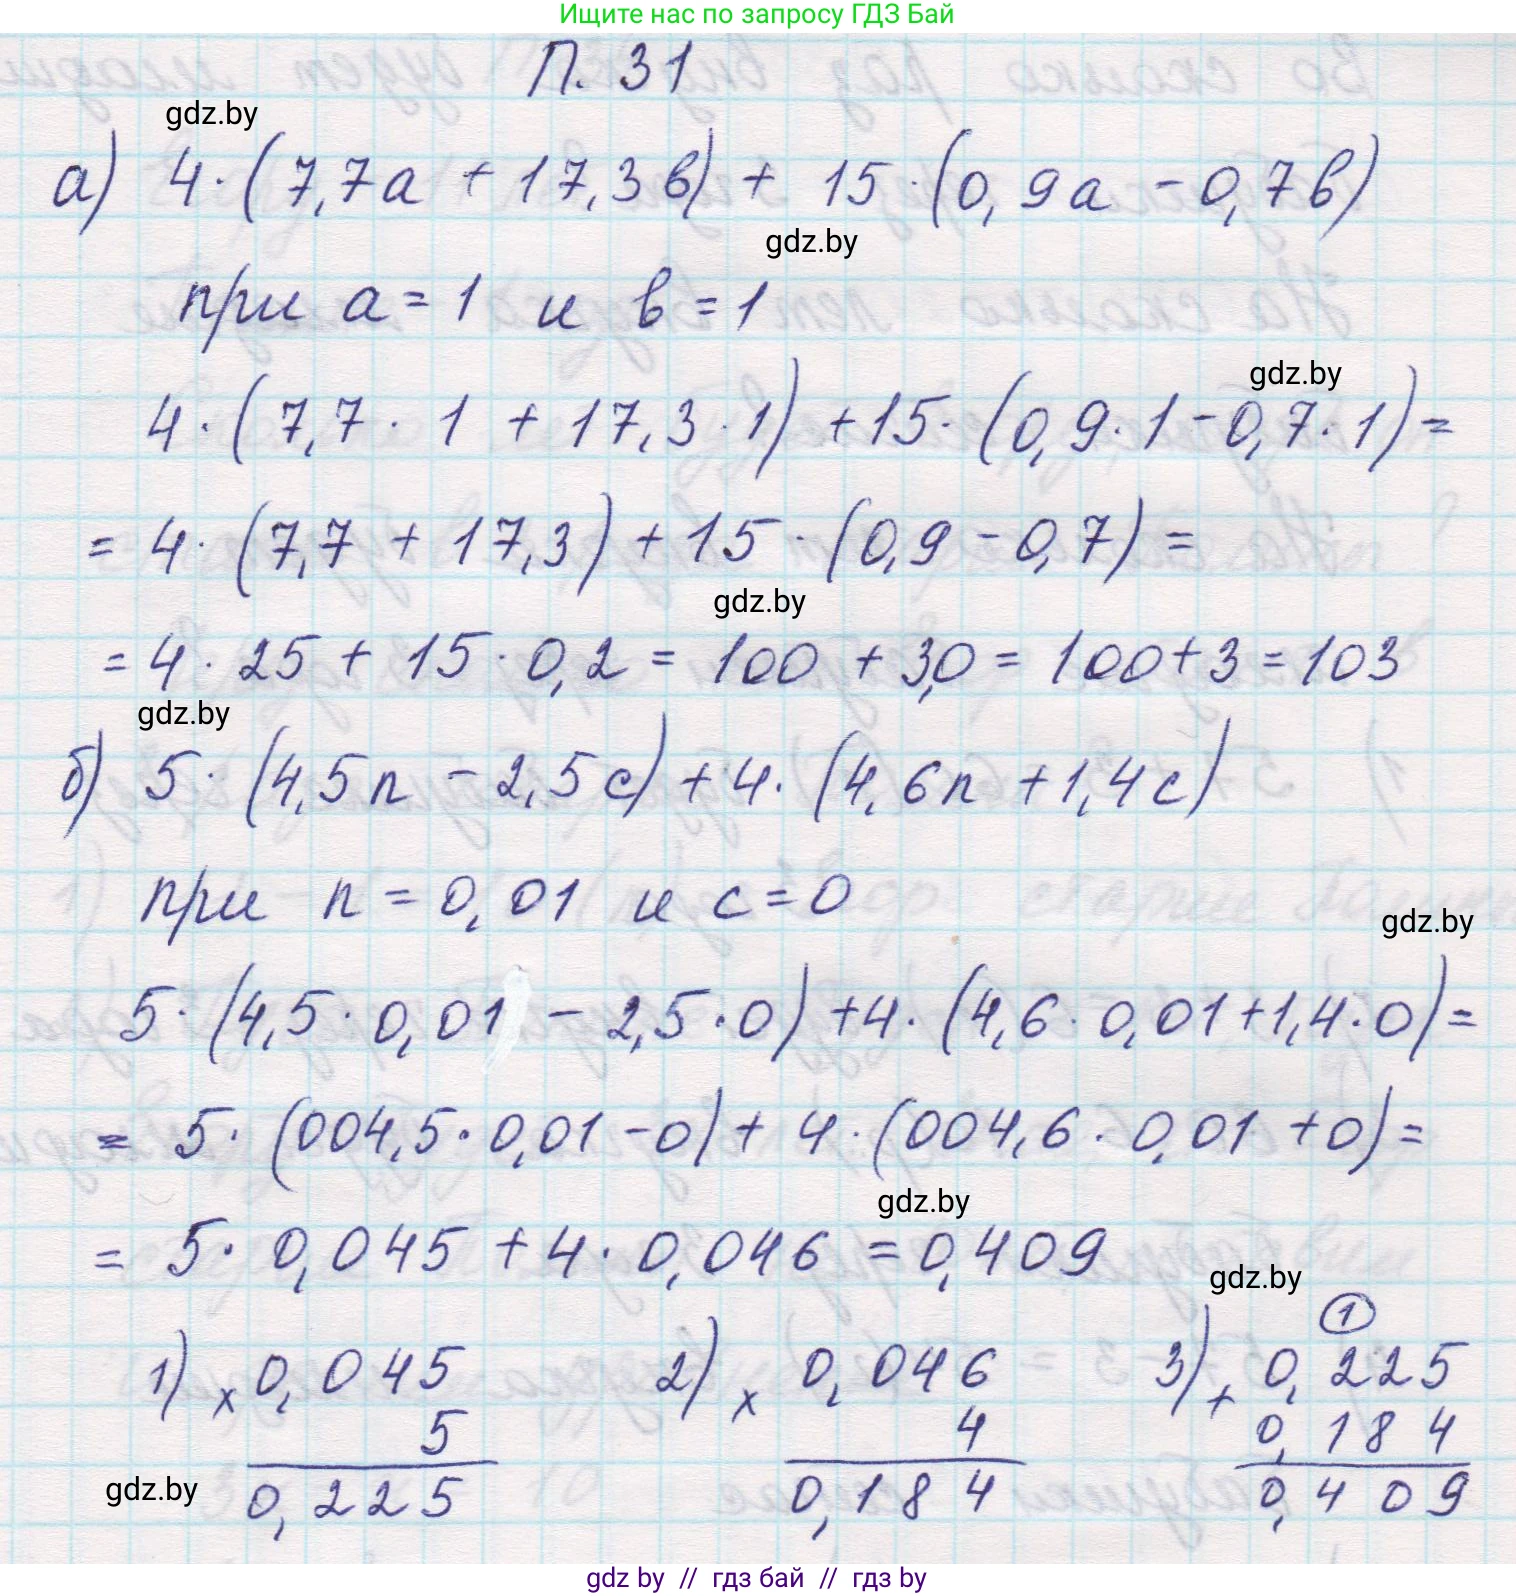 Ищите нас по запросу ГДЗ Бай
П. 31
gdz.by
а) 4·(7,7а + 17,3в) + 15·(0,9а - 0,7в)
gdz.by
при а = 1 и в = 1
gdz.by
4·(7,7·1 + 17,3·1) + 15·(0,9·1 - 0,7·1) =
= 4·(7,7 + 17,3) + 15·(0,9 - 0,7) =
gdz.by
= 4·25 + 15·0,2 = 100 + 3,0 = 100 + 3 = 103
gdz.by
б) 5·(4,5n - 2,5c) + 4·(4,6n + 1,4c)
при n = 0,01 и c = 0
gdz.by
5·(4,5·0,01 - 2,5·0) + 4·(4,6·0,01 + 1,4·0) =
= 5·(004,5·0,01 - 0) + 4·(004,6·0,01 + 0) =
gdz.by
= 5·0,045 + 4·0,046 = 0,409
gdz.by
1
1) x 0,045 2) x 0,046 3) + 0,225
5 4 0,184
gdz.by 0,225 0,184 0,409
gdz by // гдз бай // гдз by